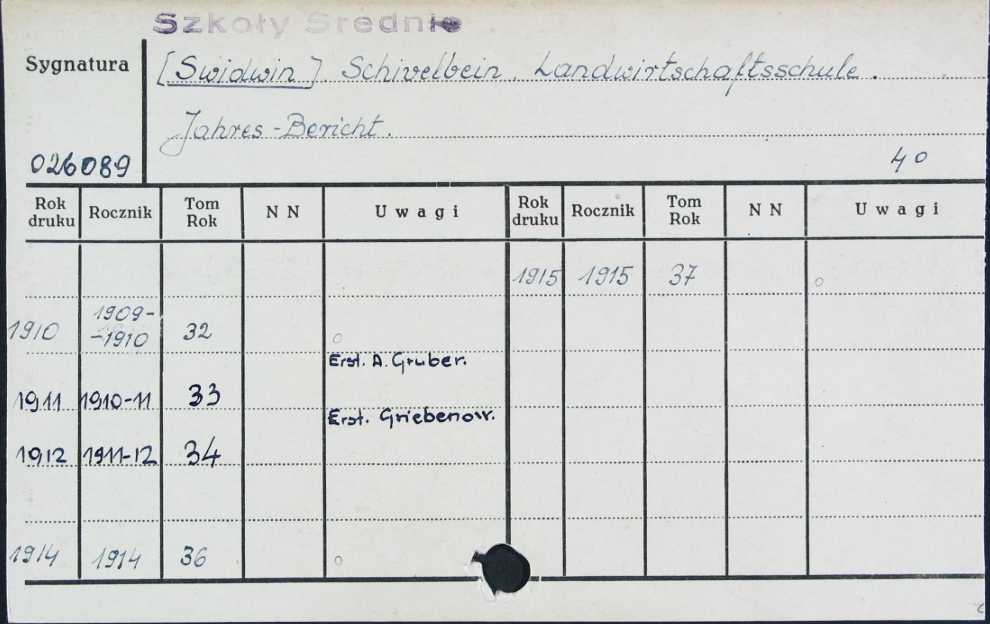 Szkoły Srednie
Sygnatura
[Swidwin] Schivelbein. Landwirtschaftsschule.
Jahres-Bericht.
026089
40
Rok druku Rocznik Tom Rok N N Uwagi Rok druku Rocznik Tom Rok N N Uwagi
1915 1915 37
1910 1909-
-1910 32
Erst. A. Gruber.
1911 1910-11 33
Erst. Griebenow.
1912 1911-12 34
1914 1914 36